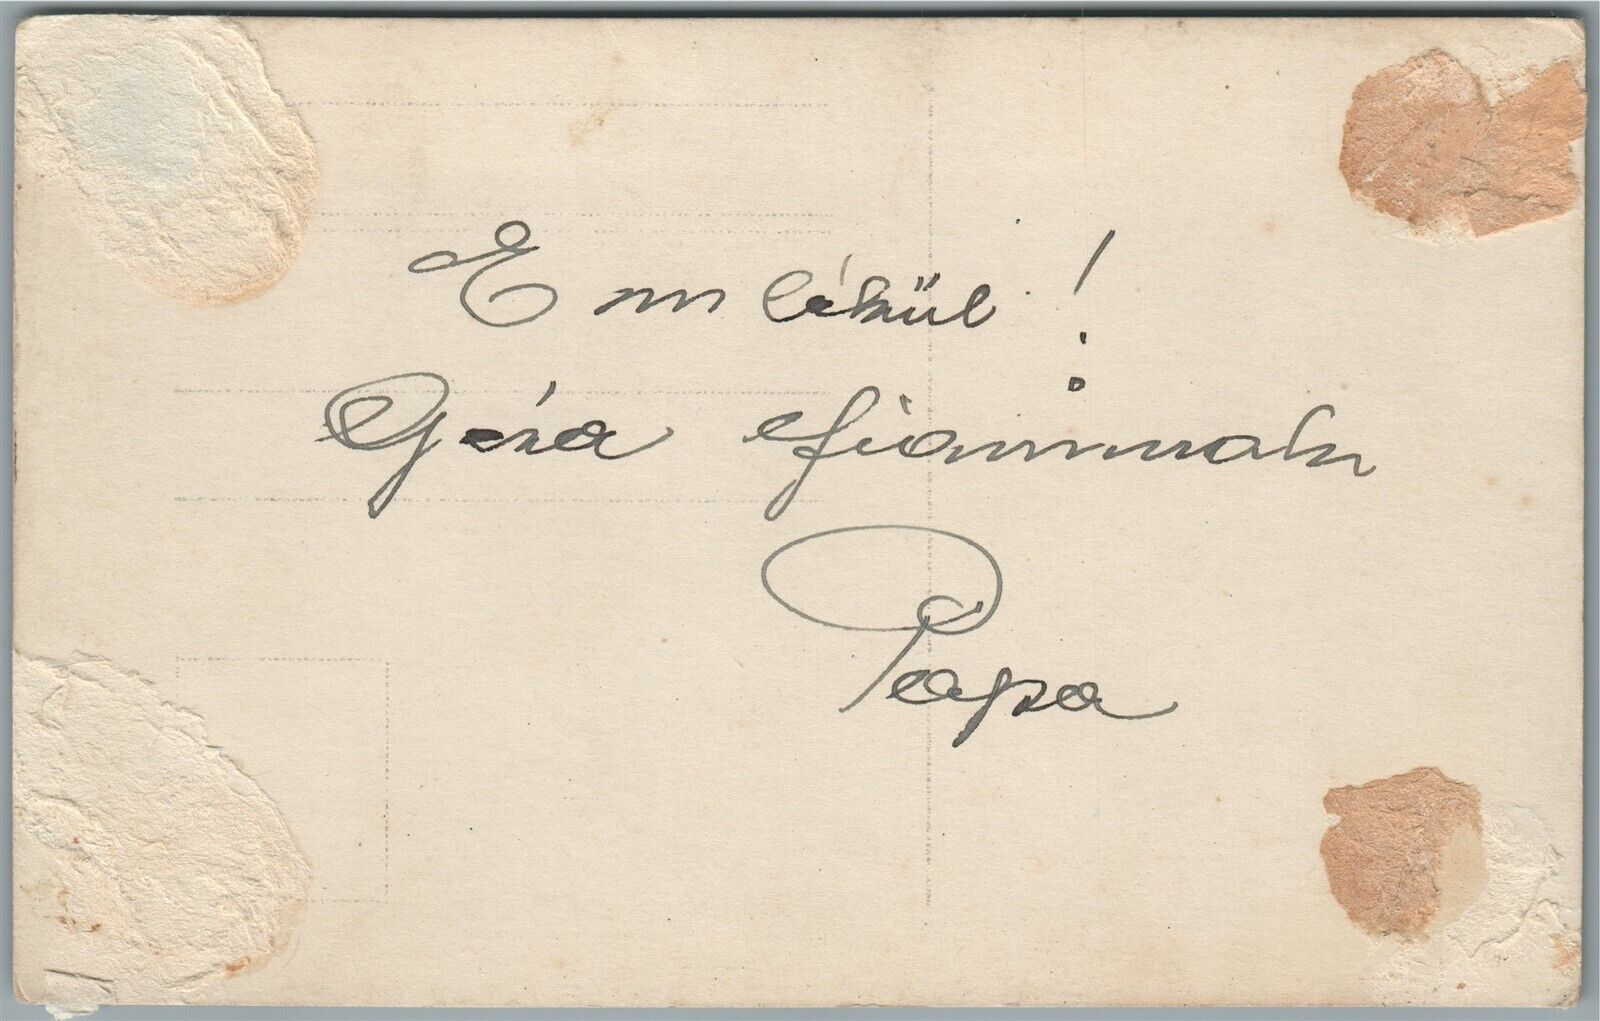 Emlékül!
Géza fiamnak
Papa